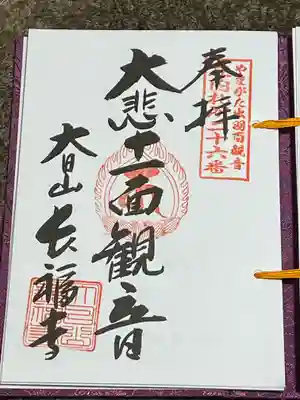 やまがた出羽百観音
庄内第二十六番
奉拝
大悲十一面観音
大日山長福寺